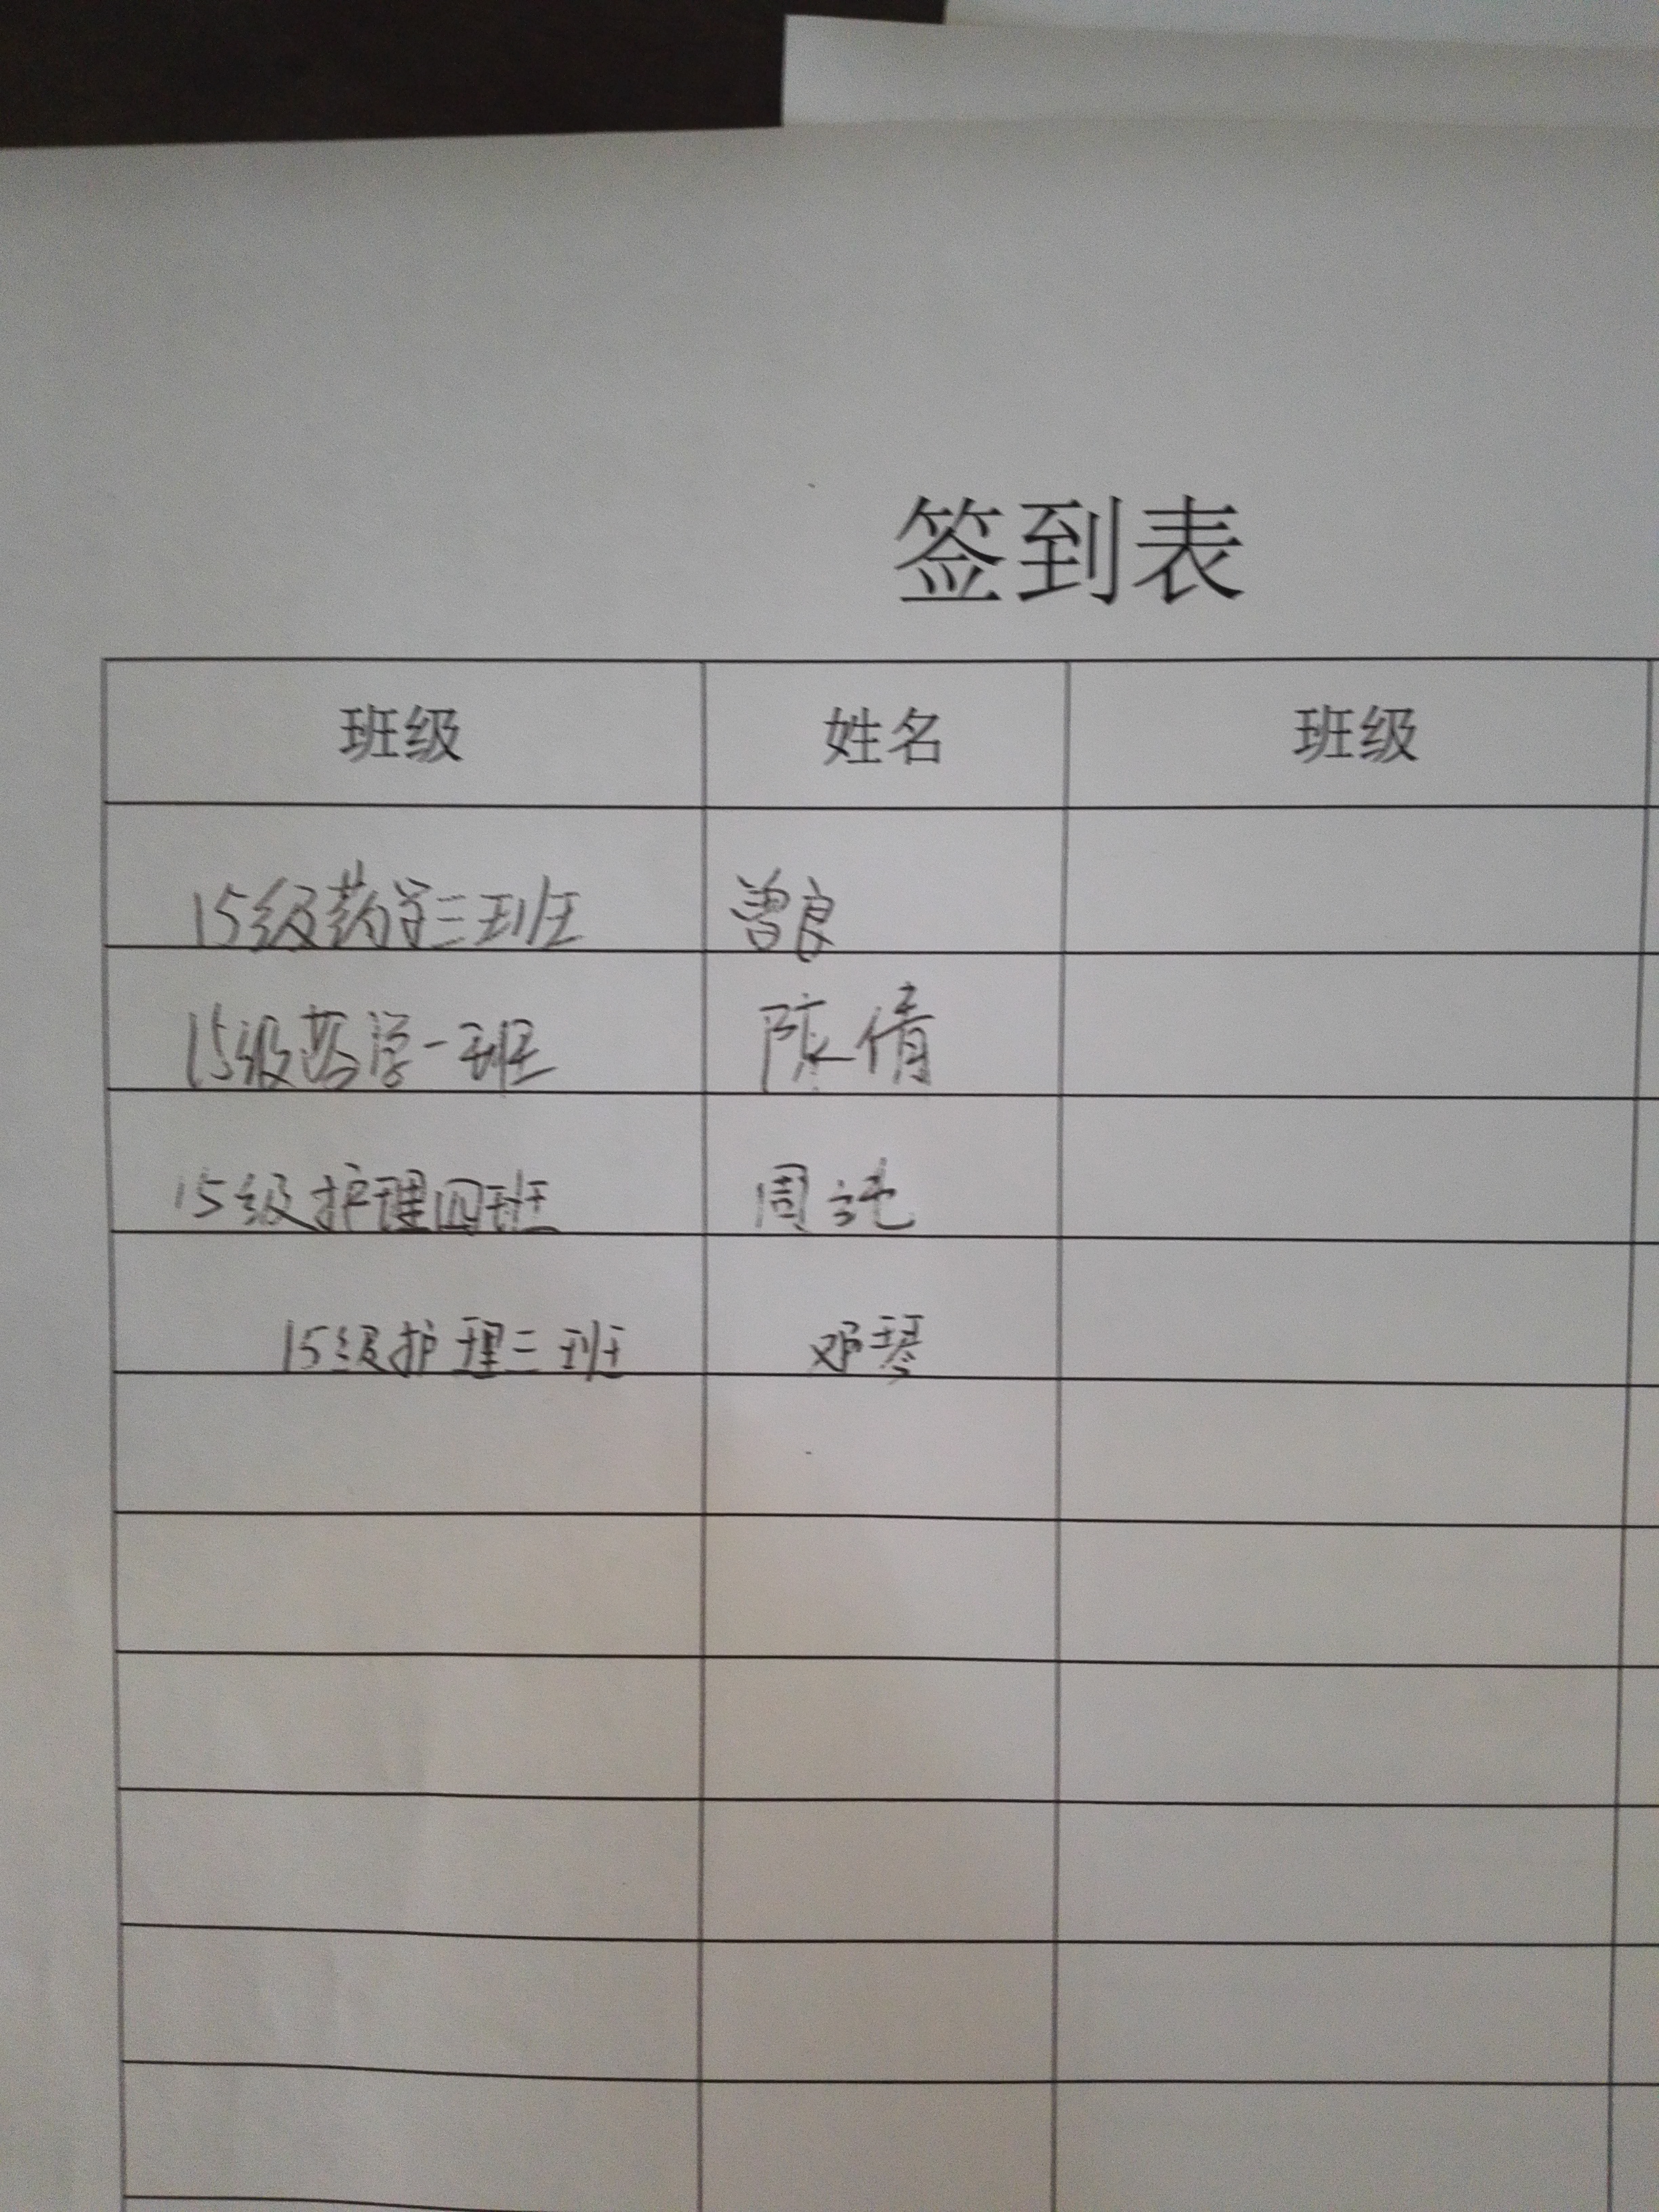 签到表
班级 姓名 班级
15级药学三班 曾良
15级药学一班 陈倩
15级护理四班 周
15级护理二班 邓琴